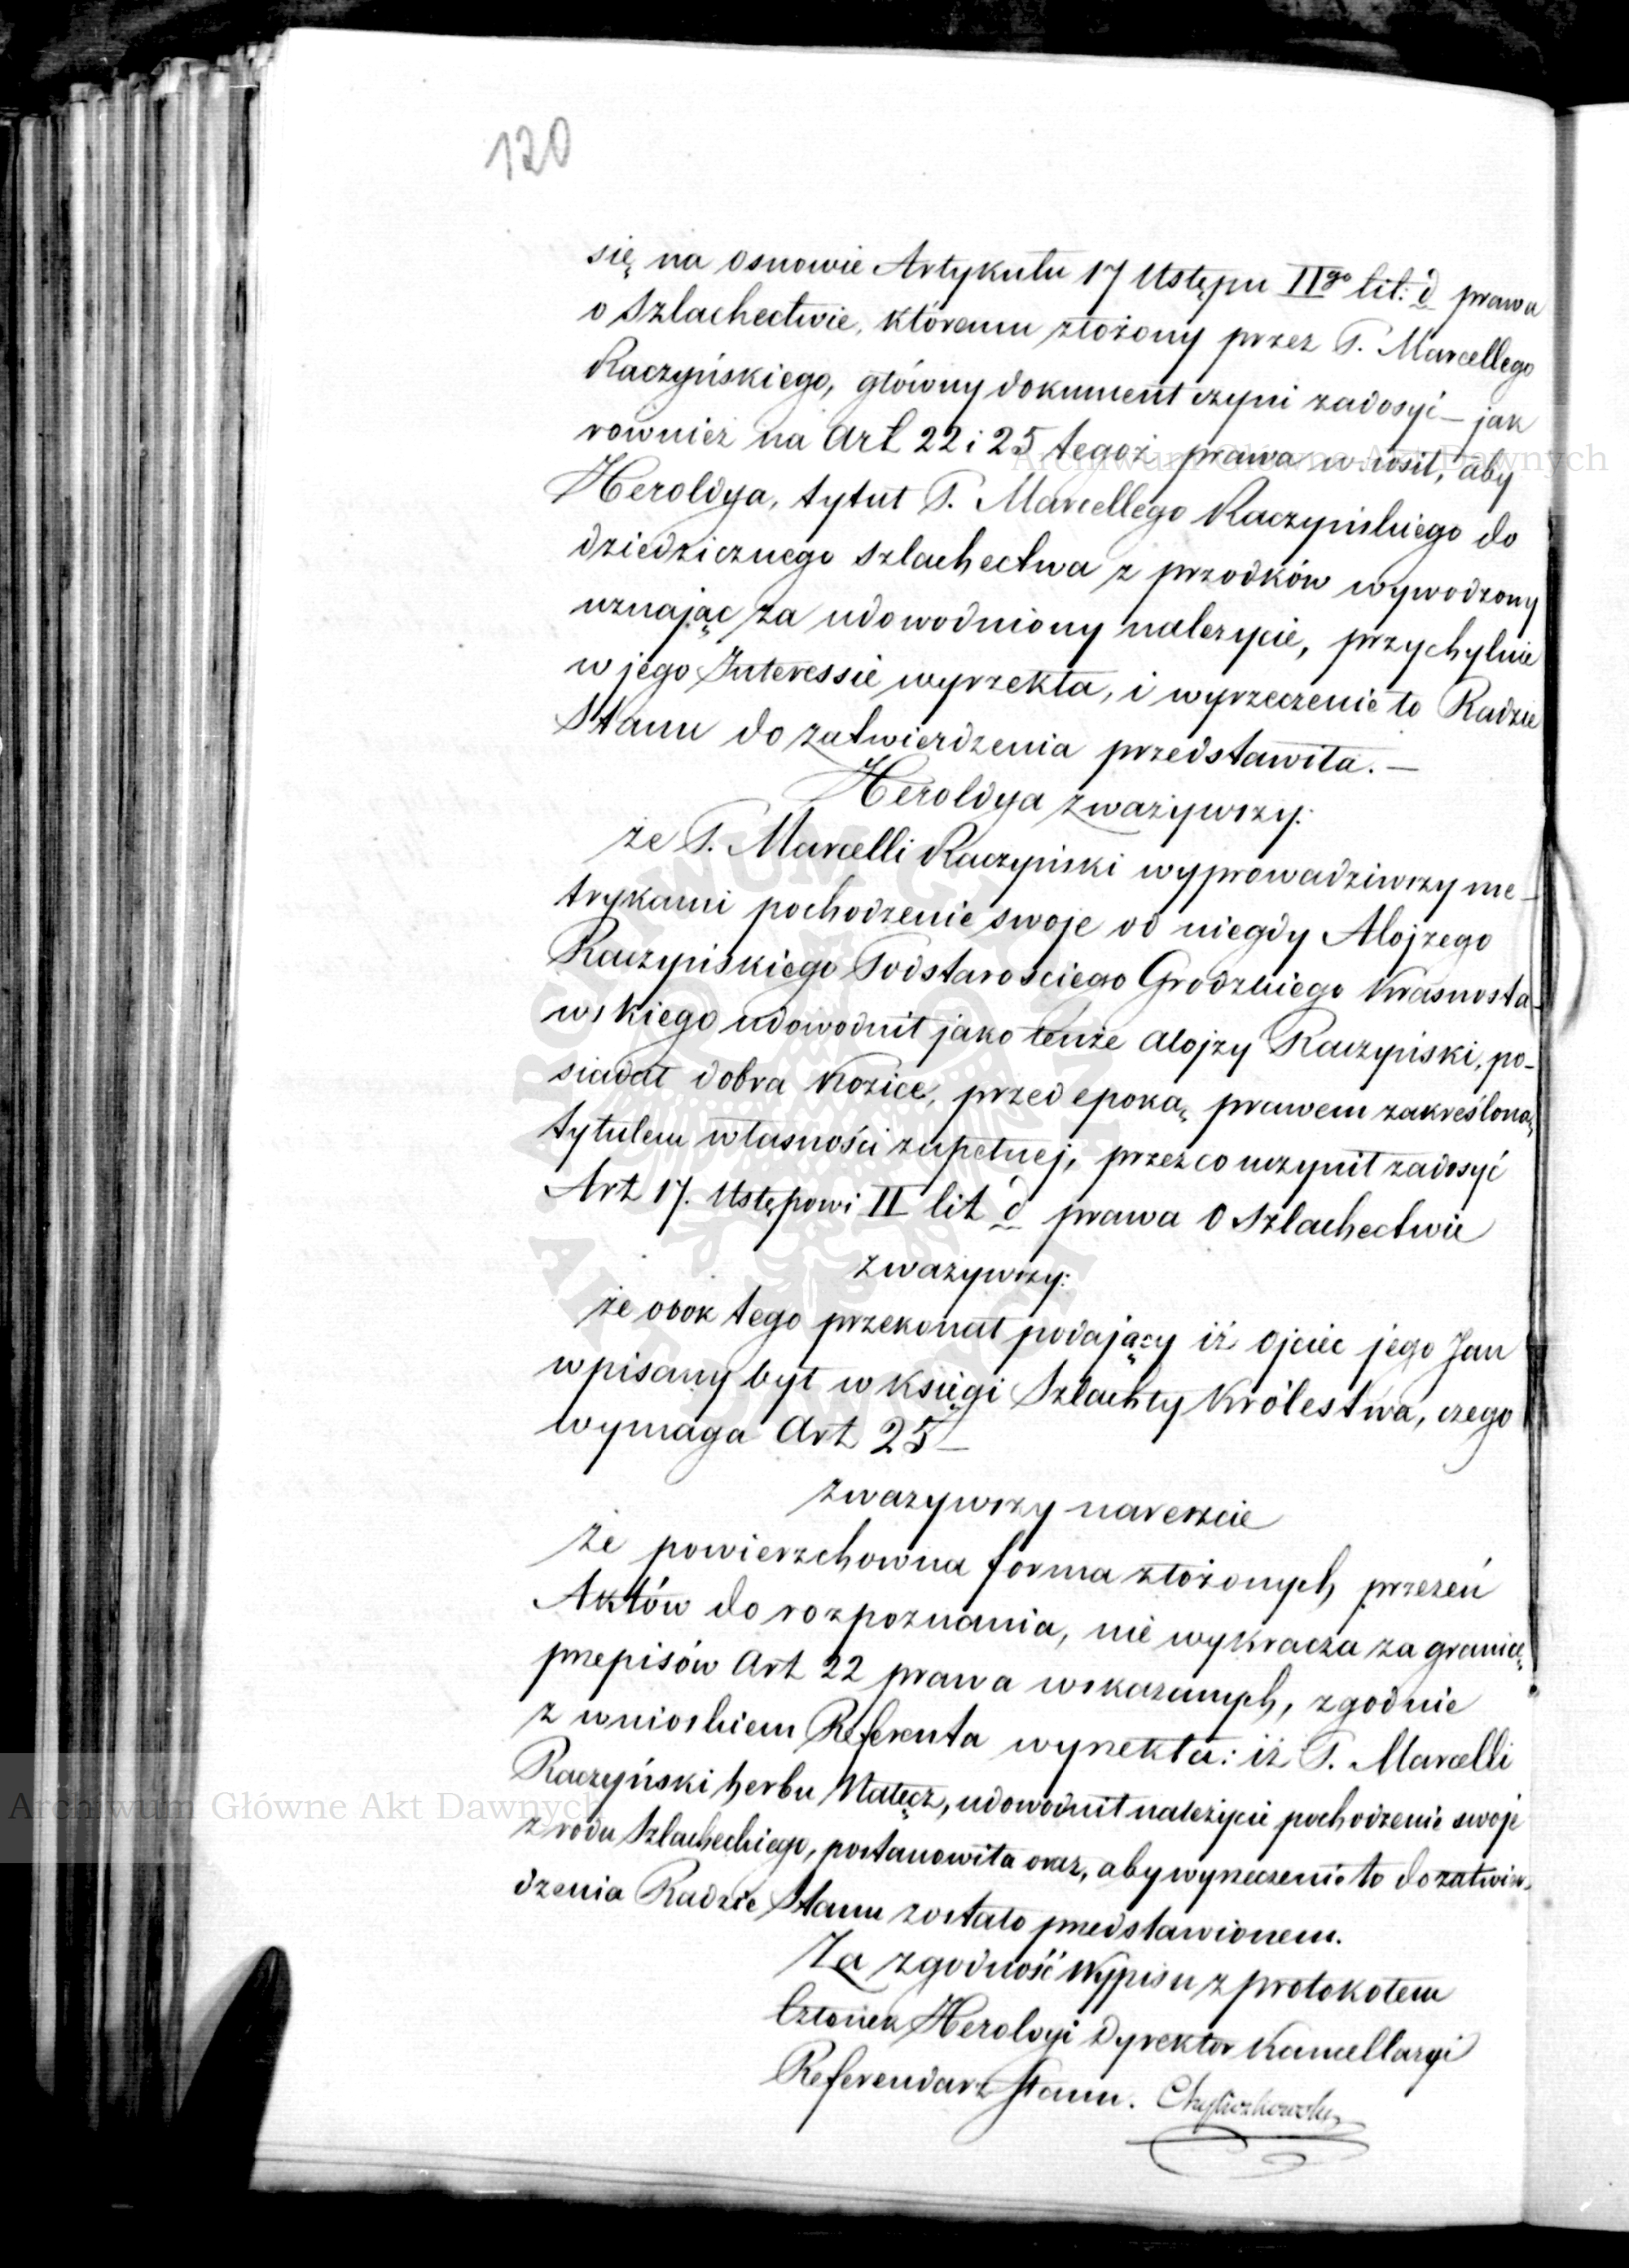 120
się na osnowie Artykułu 17 Ustępu IIgo lit: d prawa
o Szlachectwie, któremu złożony przez P. Marcellego
Raczyńskiego, główny dokument czyni zadosyć — jak
również na Art 22 i 25 tegoż prawa wnosił, aby
Heroldya, tytuł P. Marcellego Raczyńskiego do
dziedzicznego szlachectwa z przodków wywodzony
uznając za udowodniony należycie, przychylnie
w jego Interessie wyrzekła, i wyrzeczenie to Radzie
Stanu do zatwierdzenia przedstawiła. —
Heroldya zważywszy:
że P. Marcelli Raczyński wyprowadziwszy me-
trykami pochodzenie swoje od niegdy Alojzego
Raczyńskiego Podstarościego Grodzkiego Krasnosta-
wskiego udowodnił jako tenże Alojzy Raczyński, po-
siadał dobra Kozice, przed epoką prawem zakreśloną
tytułem własności zupełnej, przez co uczynił zadosyć
Art 17. Ustępowi II lit d prawa o Szlachectwie
zważywszy:
że obok tego przekonał podający iż Ojciec jego Jan
wpisany był w księgi Szlachty Królestwa, czego
wymaga Art 25 —
zważywszy nareszcie
że powierzchowna forma złożonych przezeń
Aktów do rozpoznania, nie wykracza za granicę
przepisów Art 22 prawa wskazanych, zgodnie
z wnioskiem Referenta wyrzekła: iż P. Marcelli
Raczyński herbu Nałęcz, udowodnił należycie pochodzenie swoje
z rodu Szlacheckiego, postanowiła oraz, aby wyrzeczenie to do zatwier-
dzenia Radzie Stanu zostało przedstawionem.
Za zgodność Wypisu z protokołem
Członek Heroldyi Dyrektor Kancellaryi
Referendarz Stanu.
Archiwum Główne Akt Dawnych
Archiwum Główne Akt Dawnych
ARCHIWUM GŁÓWNE AKT DAWNYCH